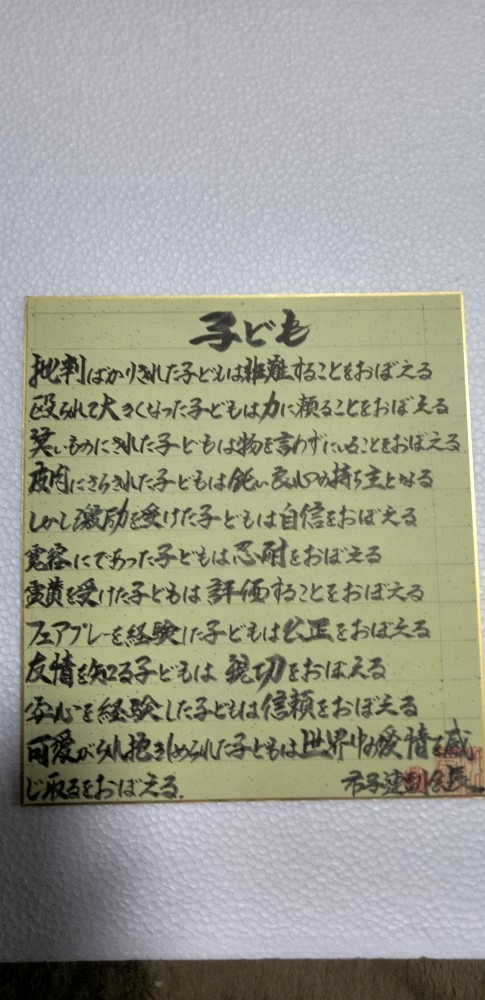 子ども
批判ばかりされた子どもは非難することをおぼえる
殴られて大きくなった子どもは力に頼ることをおぼえる
笑いものにされた子どもは物を言わずにいることをおぼえる
皮肉にさらされた子どもは鈍い良心の持ち主となる
しかし激励を受けた子どもは自信をおぼえる
寛容にであった子どもは忍耐をおぼえる
賞賛を受けた子どもは評価することをおぼえる
フェアプレーを経験した子どもは公正をおぼえる
友情を知る子どもは親切をおぼえる
安心を経験した子どもは信頼をおぼえる
可愛がられ抱きしめられた子どもは世界中の愛情を感
じ取るをおぼえる.
市子連副会長